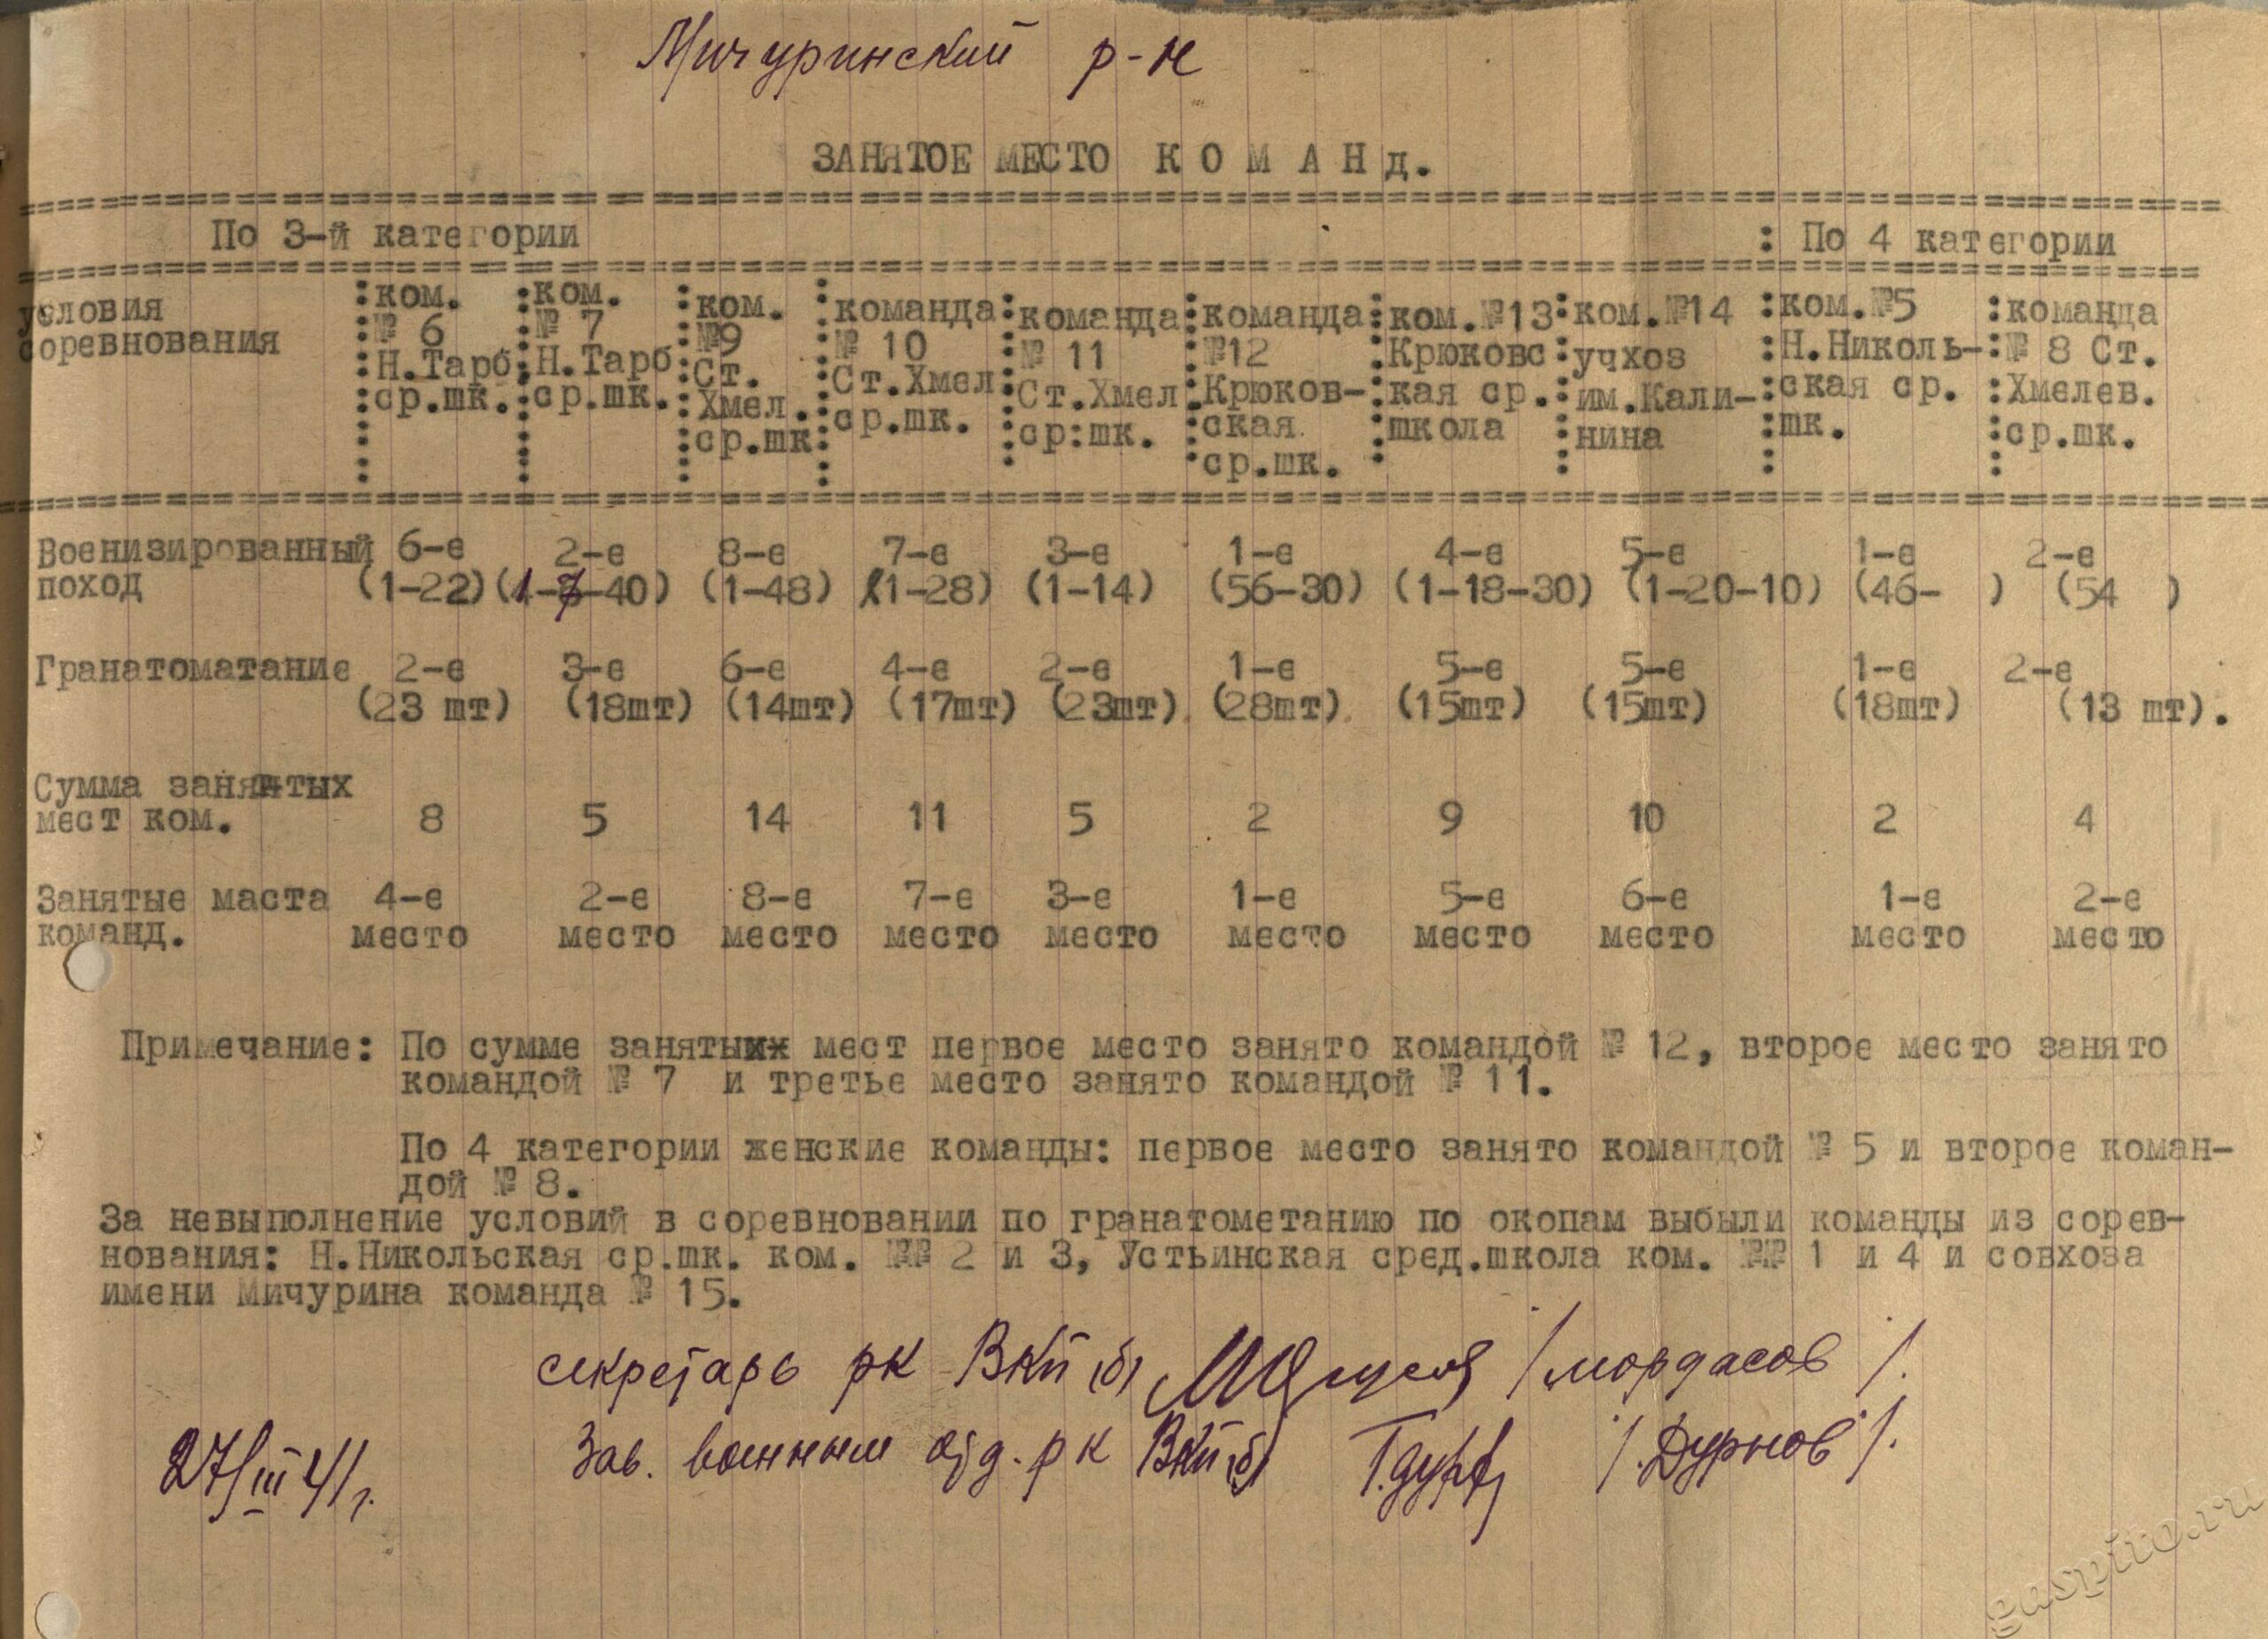 Мичуринский р-н
ЗАНЯТОЕ МЕСТО К О М А Н Д.
По 3-й категории : По 4 категории
условия :ком. :ком. :ком. :команда:команда:команда:ком.№13:ком.№14 :ком.№5 :команда
соревнования :№ 6 :№ 7 :№9 :№ 10 :№ 11 :№12 :Крюковс:учхоз :Н.Николь-:№ 8 Ст.
:Н.Тарб:Н.Тарб:Ст. :Ст.Хмел:Ст.Хмел:Крюков-:кая ср.:им.Кали-:ская ср. :Хмелев.
:ср.шк.:ср.шк.:Хмел.:ср.шк. :ср:шк. :ская :школа :нина :шк. :ср.шк.
:ср.шк: :ср.шк.
Военизированный 6-е 2-е 8-е 7-е 3-е 1-е 4-е 5-е 1-е 2-е
поход (1-22) (1-7-40) (1-48) (1-28) (1-14) (56-30) (1-18-30) (1-20-10) (46- ) (54 )
Гранатоматание 2-е 3-е 6-е 4-е 2-е 1-е 5-е 5-е 1-е 2-е
(23 шт) (18шт) (14шт) (17шт) (23шт) (28шт) (15шт) (15шт) (18шт) (13 шт).
Сумма занятых
мест ком. 8 5 14 11 5 2 9 10 2 4
Занятые маста 4-е 2-е 8-е 7-е 3-е 1-е 5-е 6-е 1-е 2-е
команд. место место место место место место место место место место
Примечание: По сумме занятых мест первое место занято командой № 12, второе место занято
командой № 7 и третье место занято командой № 11.
По 4 категории женские команды: первое место занято командой № 5 и второе коман-
дой № 8.
За невыполнение условий в соревновании по гранатометанию по окопам выбыли команды из сорев-
нования: Н.Никольская ср.шк. ком. №№ 2 и 3, Устьинская сред.школа ком. №№ 1 и 4 и совхоза
имени Мичурина команда № 15.
секретарь рк ВКП(б) /мордасов/.
Зав. военным отд. рк ВКП(б) /Дурнов/.
27/III 41 г.
gaspito.ru